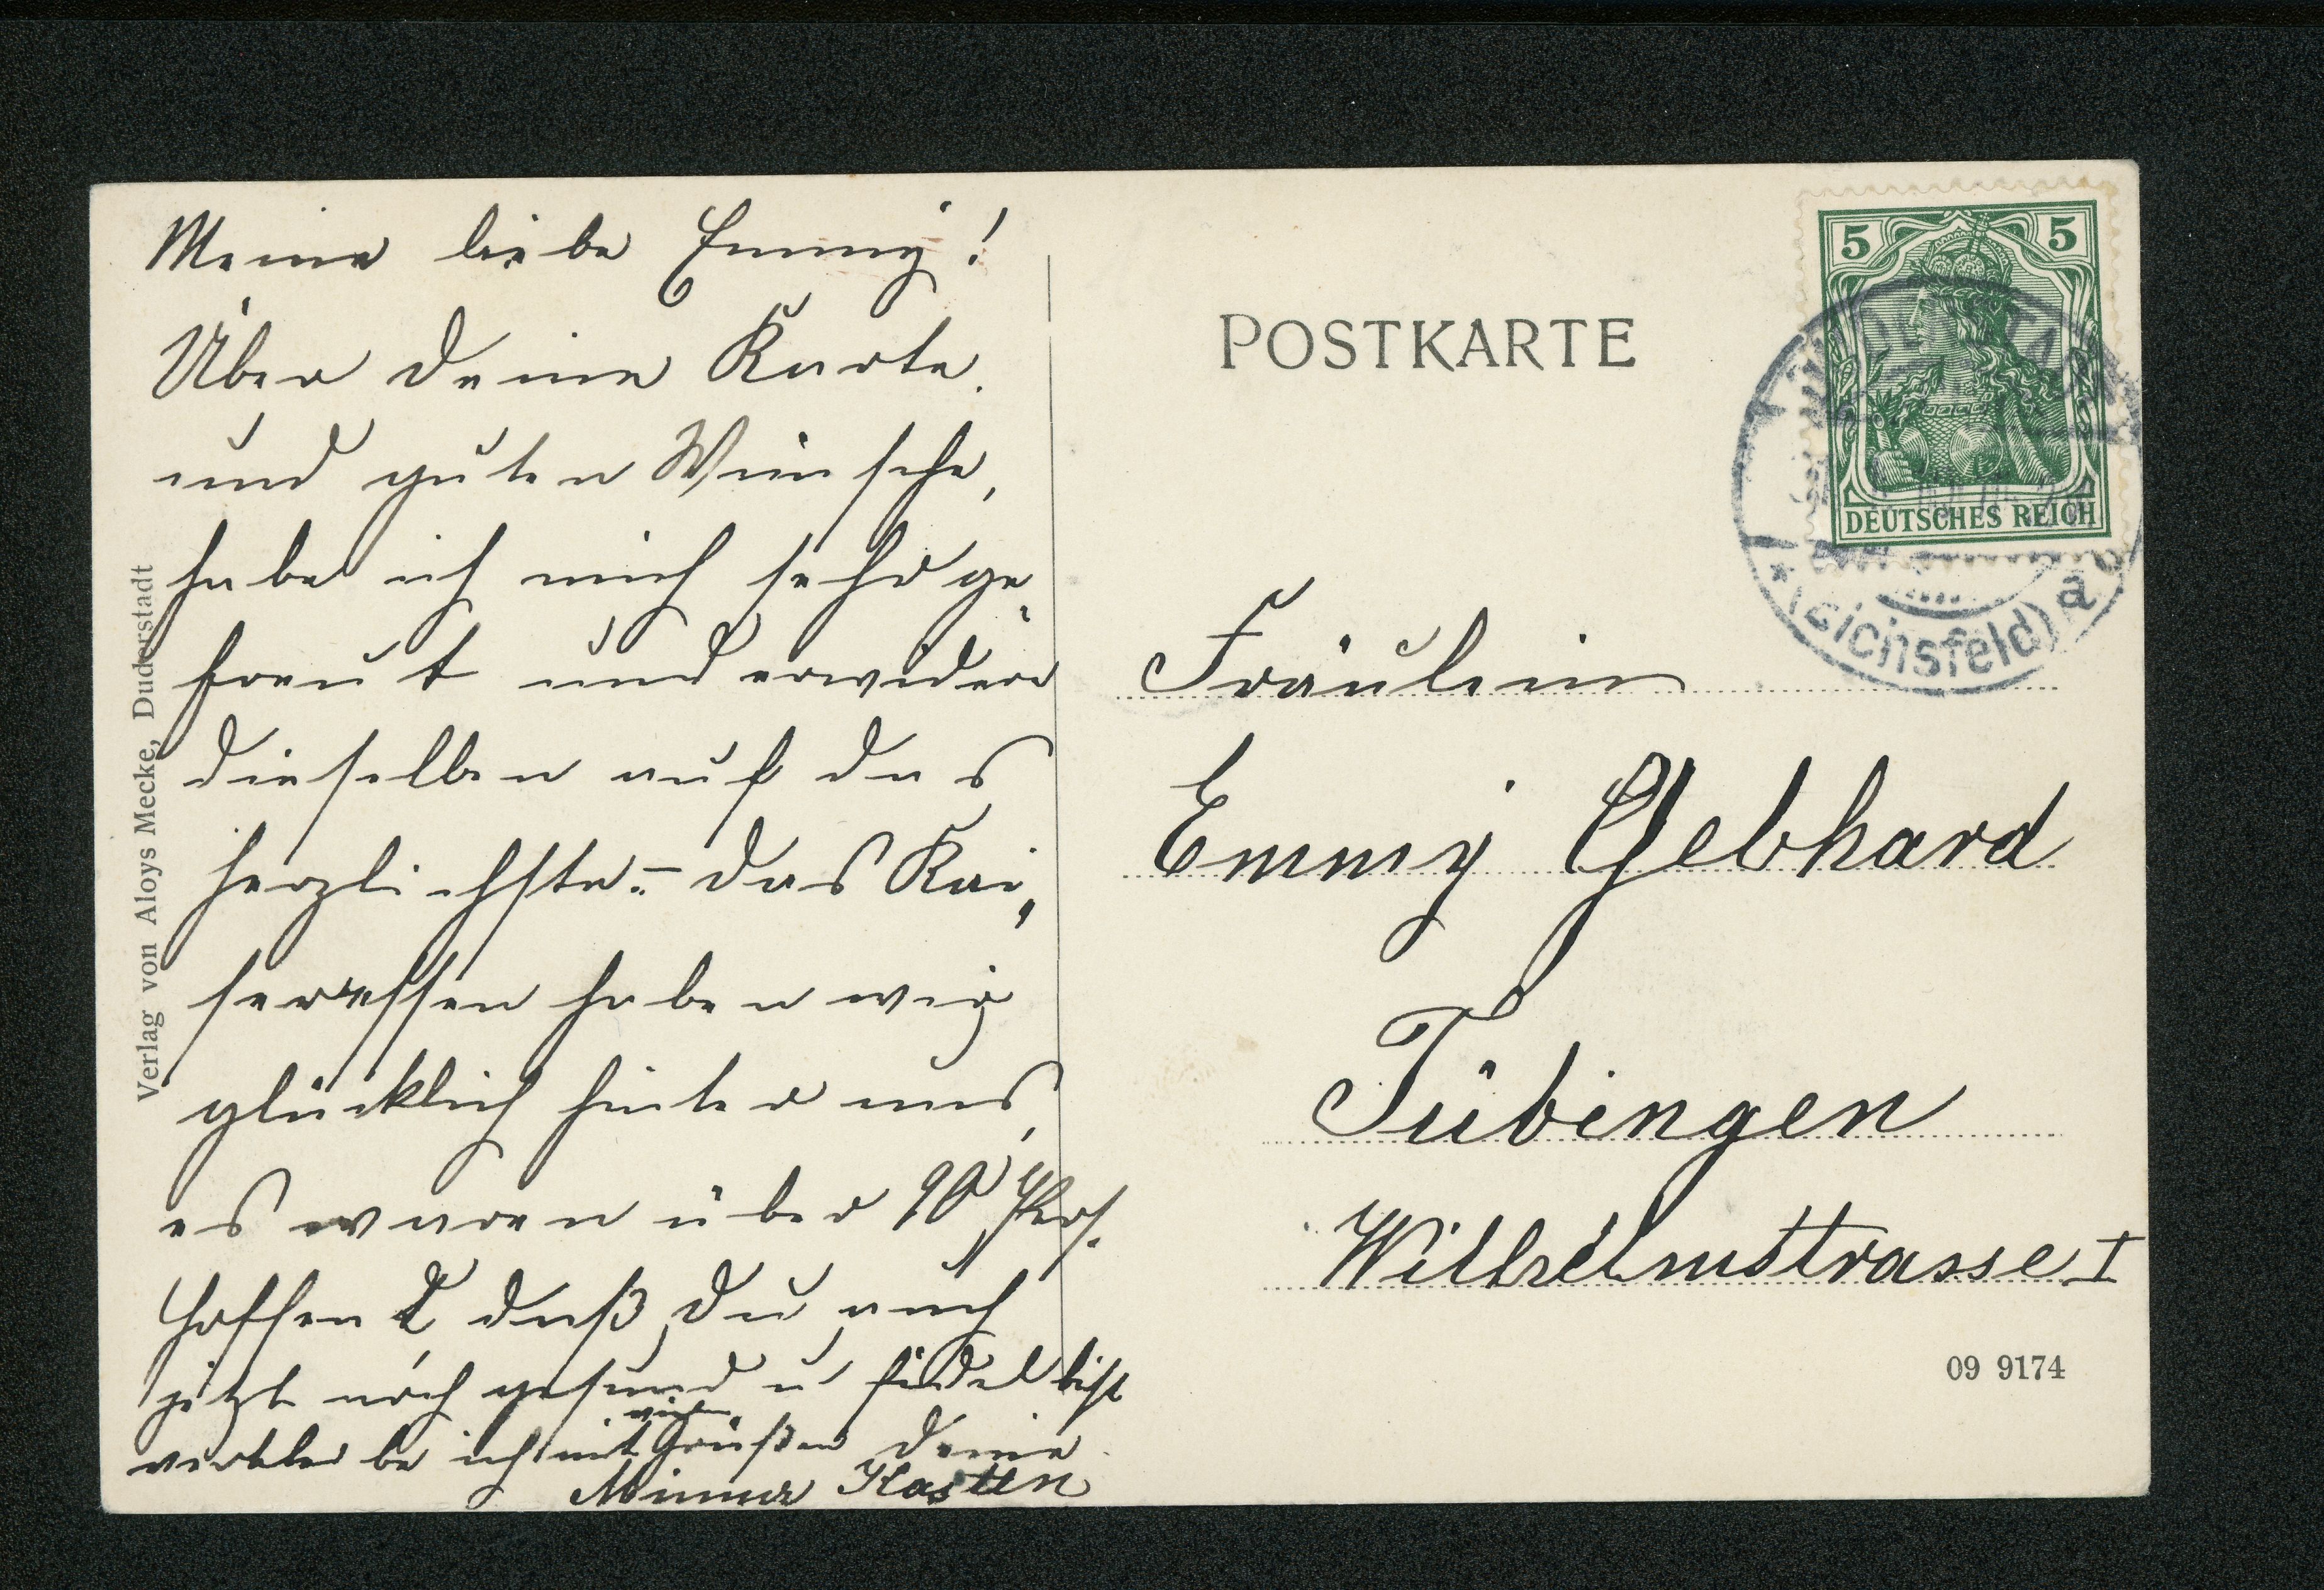 Meine liebe Emmy!
Über Deine Karte
und guten Wünsche,
habe ich mich sehr ge-
freut und erwidere
dieselben auf das
herzlichste. – Das Kai„
seressen haben wir
glücklich hinter uns,
es waren über 90 Pers.
Hoffend daß Du auch
jetzt noch gesund u fidel bist
verbleibe ich mit vielen Grüßen Deine
Minna Kasten
Verlag von Aloys Mecke, Duderstadt
POSTKARTE
5 5
DEUTSCHES REICH
(Eichsfeld) a
Fräulein
Emmy Gebhard
Tübingen
Wilhelmstrasse I
09 9174